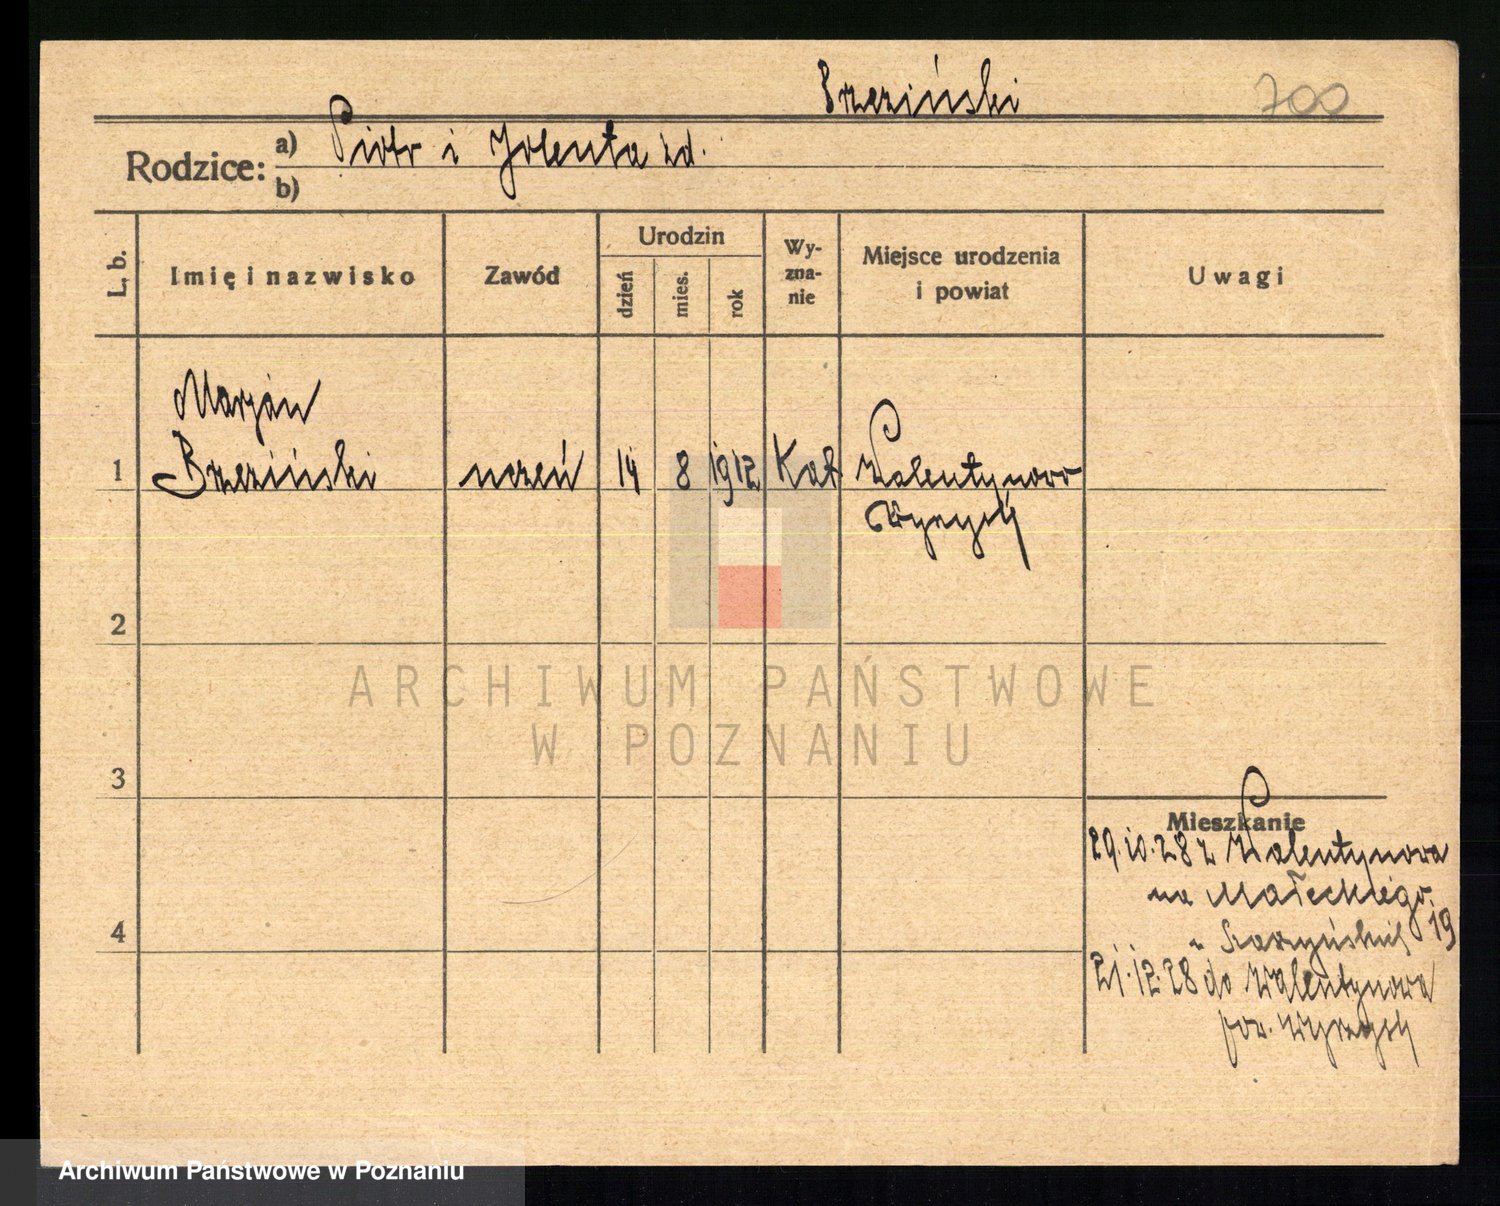 Brzeziński 700
Rodzice: a) Piotr i Jolenta zd.
b)
L. b. Imię i nazwisko Zawód Urodzin dzień mies. rok Wy-zna-nie Miejsce urodzenia i powiat Uwagi
Marjan
1 Brzeziński uczeń 14 8 1912 Kat Walentynowo
Wyrzysk
2
ARCHIWUM PAŃSTWOWE
W POZNANIU
3
Mieszkanie
29.10.28 z Walentynowa
na Małeckiego 19
u
4
21.12.28 do Walentynowa
pow. Wyrzysk
Archiwum Państwowe w Poznaniu